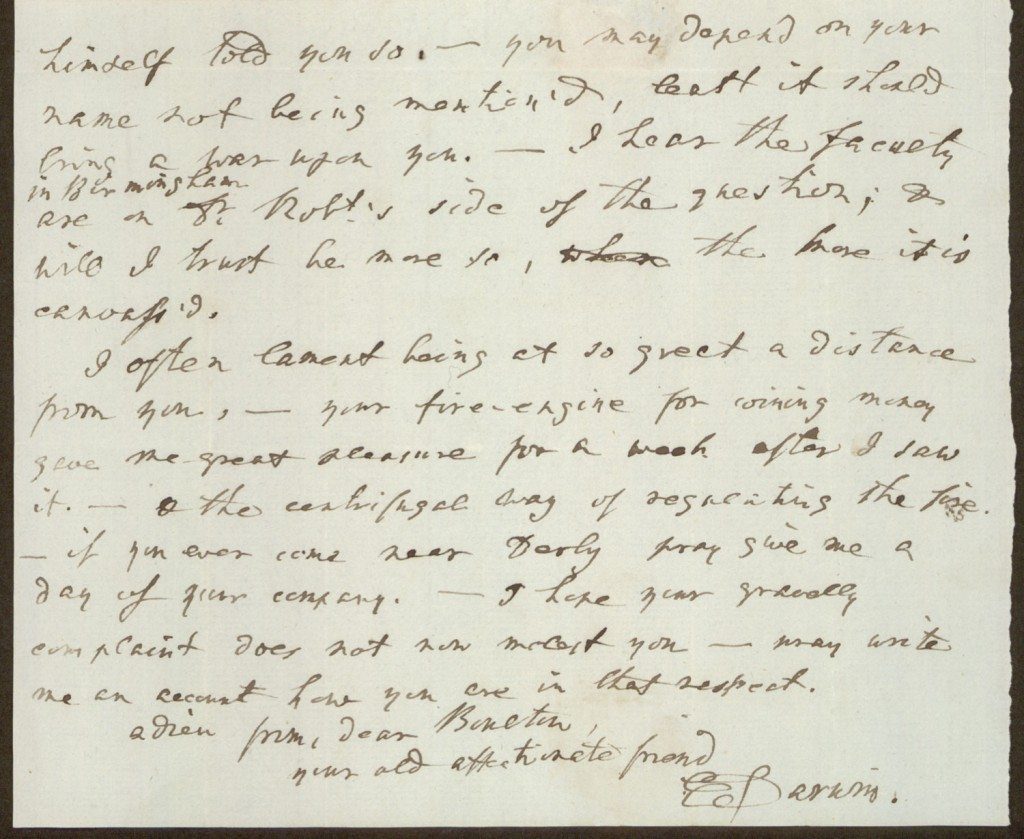 himself told you so. — you may depend on your
name not being mention'd, least it should
bring a war upon you. — I hear the faculty
in Birmingham
are on Dr. Robt.'s side of the question; &
will I trust be more so, the more it is
canvass'd.
I often lament being at so great a distance
from you, — your fire-engine for coining money
gave me great pleasure for a week after I saw
it. — & the centrifugal way of regulating the fire.
— if you ever come near Derby pray give me a
day of your company. — I hope your gravelly
complaint does not now molest you — pray write
me an account how you are in that respect.
adieu from, dear Boulton,
your old affectionate friend
E Darwin.